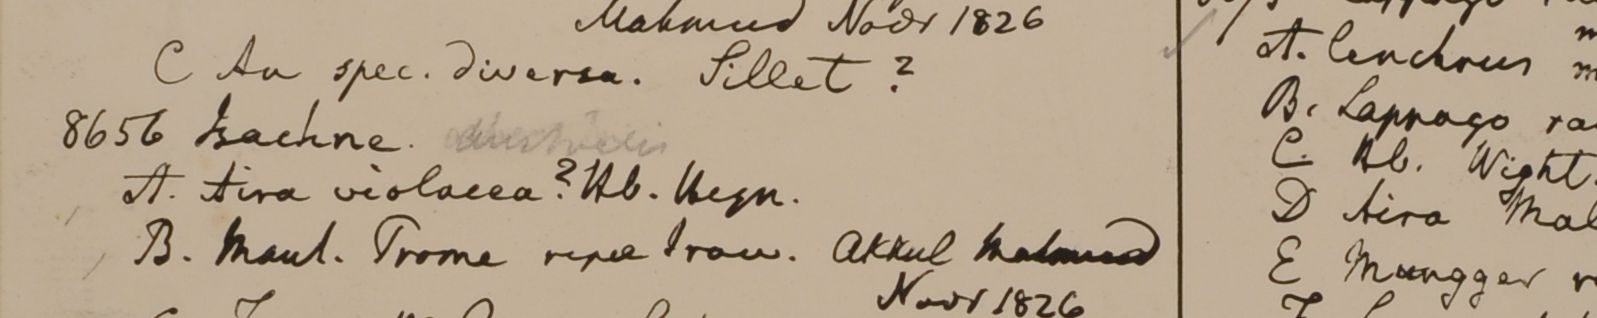 Mahmud Novr 1826
C An spec. diversa. Sillet ?
8656 Isachne.
A. Aira violacea? Hb. Heyn.
B. Maul. Prome ripæ Iraw. Akkul
Novr 1826
A. Cenchrus
B. Lappago ra
C. Hb. Wight.
D Aira Mal
E Mungger r